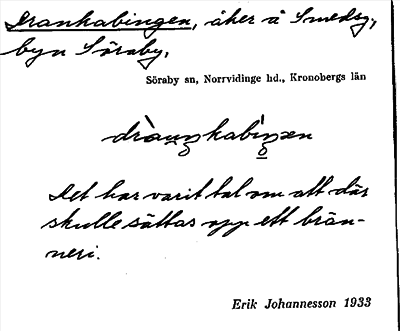 Drankabingen, åker å Smedsg,
byn Söraby.
Söraby sn, Norrvidinge hd., Kronobergs län
dràuŋkabìŋen
Det har varit tal om att där
skulle sättas opp ett brän-
neri.
Erik Johannesson 1933